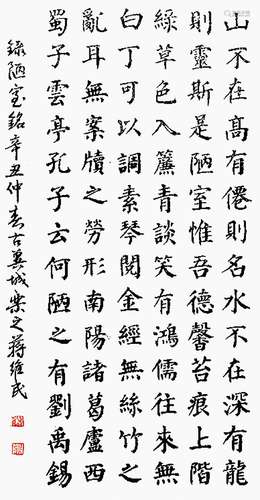 山不在高有僊則名水不在深有龍
則靈斯是陋室惟吾德馨苔痕上階
綠草色入簾青談笑有鴻儒往來無
白丁可以調素琴閱金經無絲竹之
亂耳無案牘之勞形南陽諸葛廬西
蜀子雲亭孔子云何陋之有劉禹錫
録陋室銘辛丑仲春古冀城樂之蔣維民